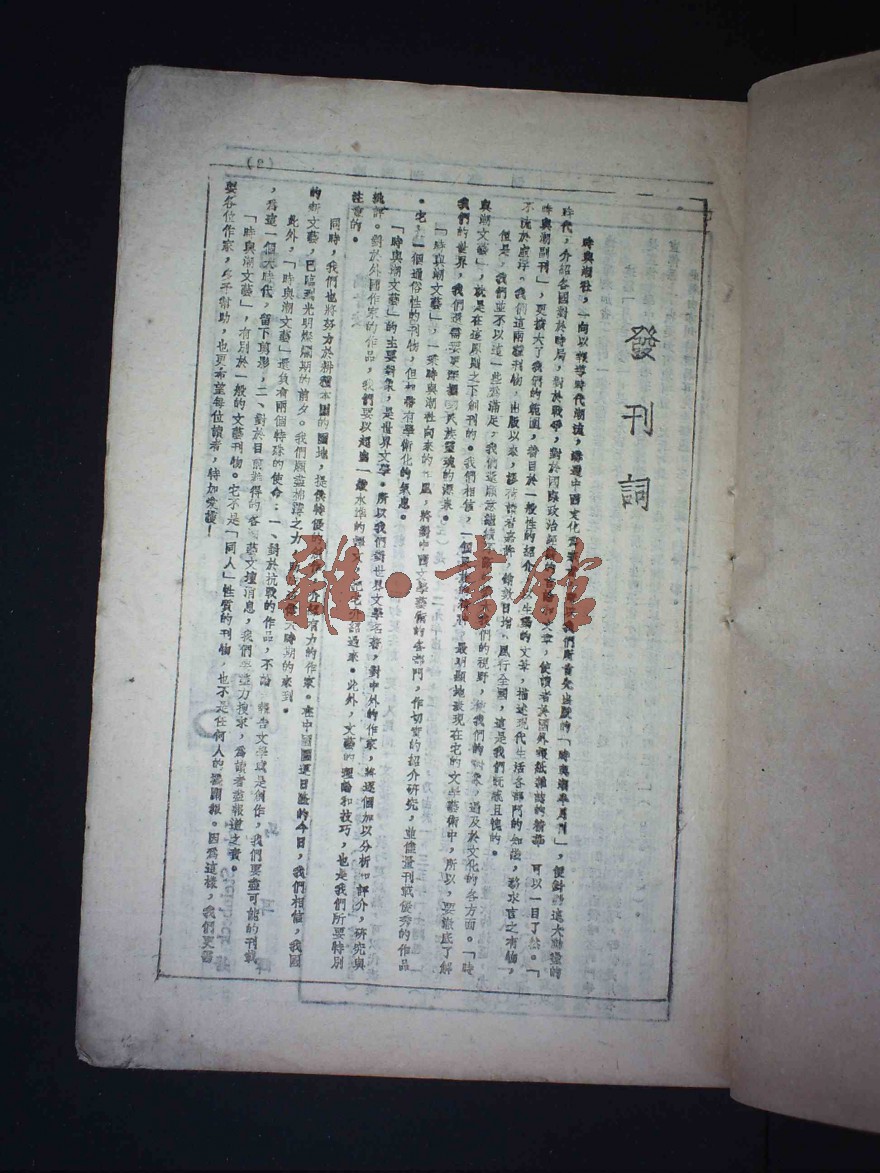 發刊詞
時與潮社，一向以報導時代潮流，溝通中西文化
我們所首先出版的「時與潮半月刊」，便針對這大動盪的
時代，介紹各國對於時局，對於戰爭，對於國際政治
可以一目了然。「
時與潮副刊」，更擴大了我們的範圍，着目於一般性的紹介
的文章，描述現代生活各部門的知識，務求言之有物，
不流於虛浮。我們這兩種刊物，出版以來，
風行全國，這是我們既感且愧的。
但是，我們並不以這一些為滿足，我們還願意繼續
我們的視野，
遍及於文化的各方面。「時
與潮文藝」，就是在這原則之下創刊的。我們相信，一個民族的
最明顯地表現在它的文學藝術中，所以，要徹底了解
我們的世界，我們還需要
民族靈魂的源泉。
「時與潮文藝」，一秉時與潮社向來的作風，將對中西文學藝術的各部門，作切實的紹介研究，並儘量刊載優秀的作品
。它，一個通俗性的刊物，但却帶有學術化的氣息。
「時與潮文藝」的主要對象，是世界文學。所以我們對世界文學名著，對中外的作家，將逐個加以分析和評介，研究與
批評。對於外國作家的作品，我們要以超出一般水準的譯文
介紹過來。此外，文藝的理論和技巧，也是我們所要特別
注重的。
同時，我們也將努力於耕種本國的園地，提供特優的
介紹有力的作家。在中國國運日隆的今日，我們相信，我國
的新文藝，已臨到光明燦爛期的前夕。我們願盡棉薄之力
大時期的來到。
此外，「時與潮文藝」還負有兩個特殊的使命：一、對於抗戰的作品，不論
報告文學或是創作，我們要盡可能的刊載
，為這一個大時代，留下寫影，二、對於目前難得的各
藝文壇消息，我們
盡力搜求，為讀者盡報道之責。
「時與潮文藝」，有別於一般的文藝刊物。它不是「同人」性質的刊物，也不是任何人的
因為這樣，我們更需
要各位作家，多予幫助，也更希望每位讀者，特加愛護！
雜·書館